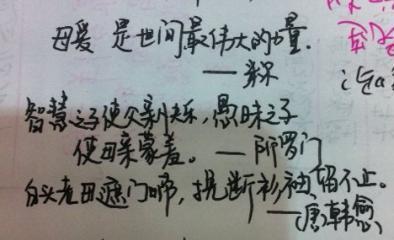 母爱是世间最伟大的力量.
——米尔
智慧之子使父亲快乐,愚昧之子
使母亲蒙羞。—所罗门
白头老母遮门啼,挽断衫袖留不止。
——唐韩愈